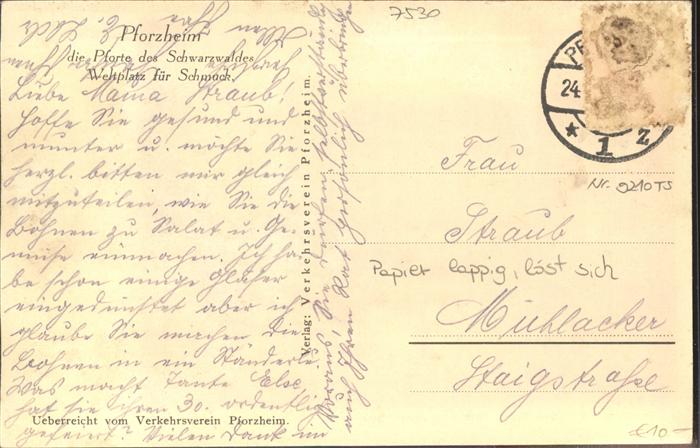 Pforzheim
die Pforte des Schwarzwaldes
Weltplatz für Schmuck.
Liebe Mama Straub!
Hoffe Sie gesund und
munter u. möchte Sie
herzl. bitten mir gleich
mitzuteilen, wie Sie die
Bohnen zu Salat u. Ge-
müse einmachen. Ich ha-
be schon einige Gläser
eingedünstet aber ich
glaube Sie machen die
Bohnen in ein Ständerle.
Was macht Tante Else,
hat sie ihren 30. ordentlich
gefeiert? Vielen Dank im
Voraus, Sie dürfen selbstverständlich
auch Ihren Rat persönlich überbringen
Ueberreicht vom Verkehrsverein Pforzheim.
Verlag: Verkehrsverein Pforzheim.
7530
PF
24.
* 1 z
Frau
Nr. 9210TS
Straub
Papier lappig, löst sich
Mühlacker
Staigstraße
€10-